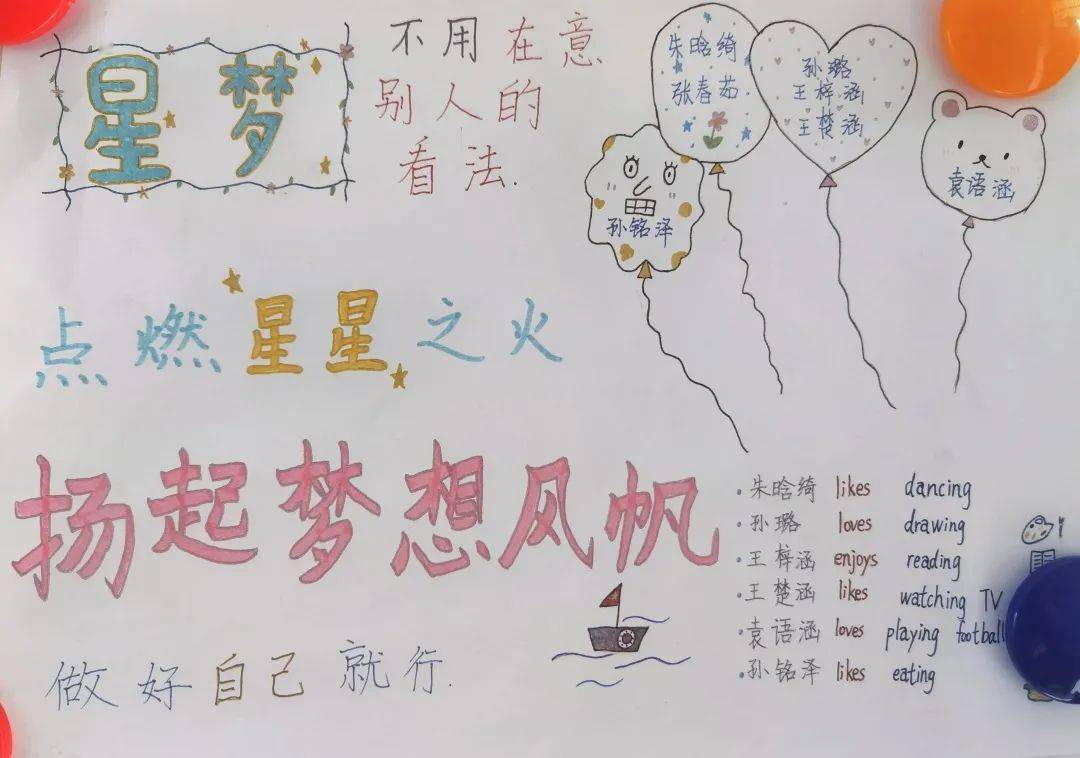 星梦
不用在意
别人的
看法.
朱晗绮
张春茹
孙璐
王梓涵
王楚涵
袁语涵
孙铭泽
点燃星星之火
扬起梦想风帆
做好自己就行.
·朱晗绮 likes dancing
·孙璐 loves drawing
·王梓涵 enjoys reading
·王楚涵 likes watching TV
·袁语涵 loves playing football
·孙铭泽 likes eating